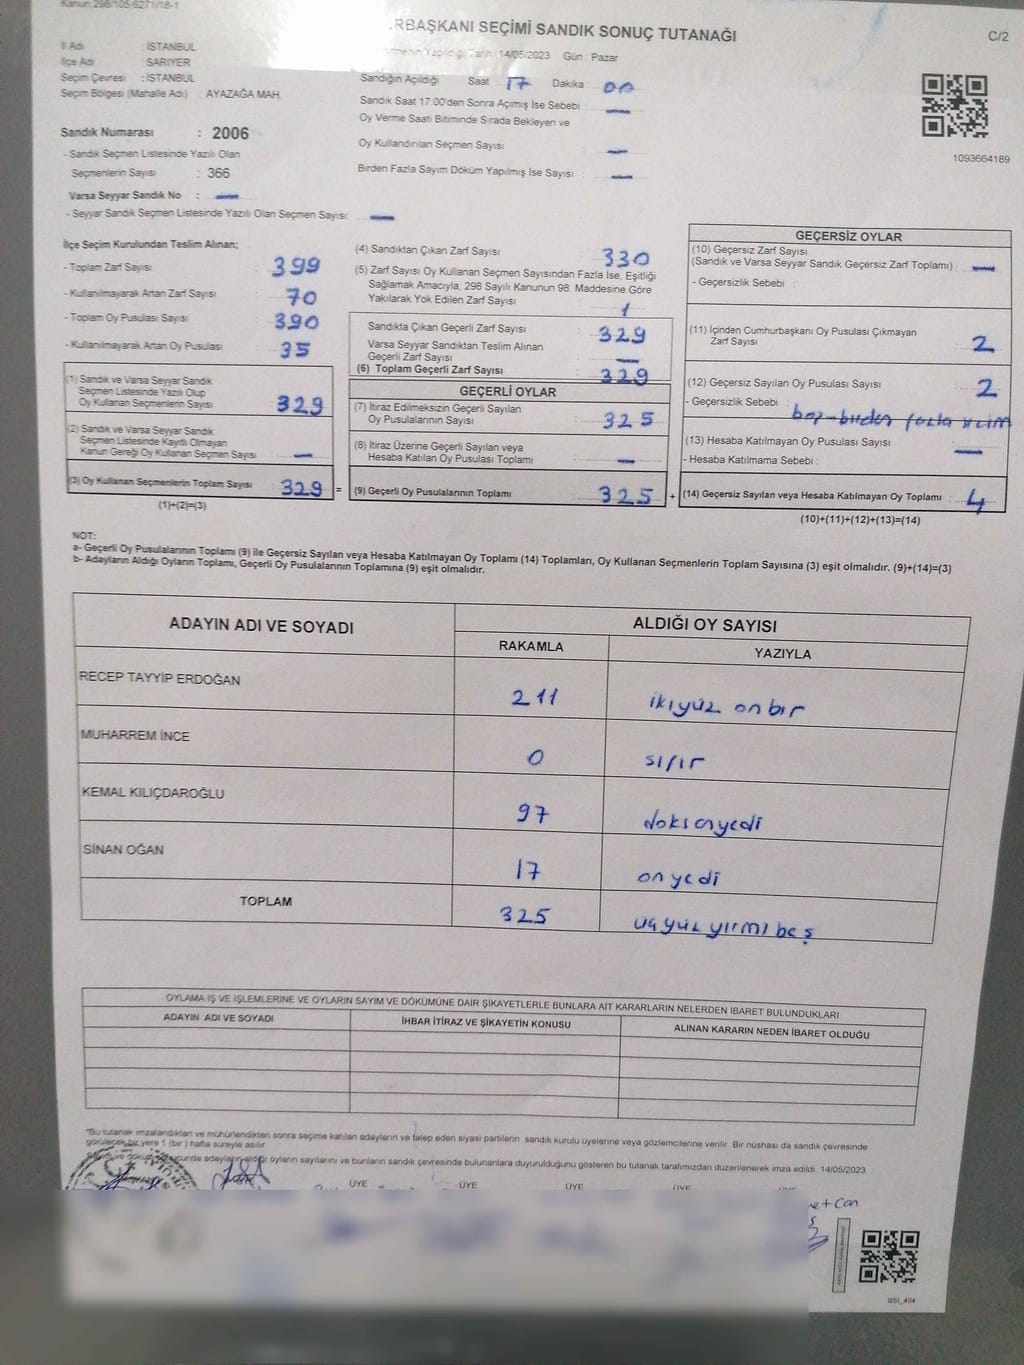 Kanun 298/105,6271/18-1
RBAŞKANI SEÇİMİ SANDIK SONUÇ TUTANAĞI
C/2
İl Adı : İSTANBUL
İlçe Adı : SARIYER
Seçim Çevresi : İSTANBUL
Seçim Bölgesi (Mahalle Adı) : AYAZAĞA MAH.
14/05/2023 Gün : Pazar
Sandığın Açıldığı Saat 17 Dakika 00
Sandık Saat 17:00'den Sonra Açımış İse Sebebi : —
Oy Verme Saati Bitiminde Sırada Bekleyen ve
Oy Kullandırılan Seçmen Sayısı : —
Birden Fazla Sayım Döküm Yapılmış İse Sayısı : —
1093664189
Sandık Numarası : 2006
- Sandık Seçmen Listesinde Yazılı Olan
Seçmenlerin Sayısı : 366
Varsa Seyyar Sandık No : —
- Seyyar Sandık Seçmen Listesinde Yazılı Olan Seçmen Sayısı: —
İlçe Seçim Kurulundan Teslim Alınan;
- Toplam Zarf Sayısı : 399
- Kullanılmayarak Artan Zarf Sayısı : 70
- Toplam Oy Pusulası Sayısı : 390
- Kullanılmayarak Artan Oy Pusulası : 35
(1) Sandık ve Varsa Seyyar Sandık
Seçmen Listesinde Yazılı Olup
Oy Kullanan Seçmenlerin Sayısı : 329
(2) Sandık ve Varsa Seyyar Sandık
Seçmen Listesinde Kayıtlı Olmayan
Kanun Gereği Oy Kullanan Seçmen Sayısı : —
(3) Oy Kullanan Seçmenlerin Toplam Sayısı : 329 =
(1)+(2)=(3)
(4) Sandıktan Çıkan Zarf Sayısı : 330
(5) Zarf Sayısı Oy Kullanan Seçmen Sayısından Fazla İse, Eşitliği
Sağlamak Amacıyla, 298 Sayılı Kanunun 98. Maddesine Göre
Yakılarak Yok Edilen Zarf Sayısı : 1
Sandıkta Çıkan Geçerli Zarf Sayısı : 329
Varsa Seyyar Sandıktan Teslim Alınan
Geçerli Zarf Sayısı : —
(6) Toplam Geçerli Zarf Sayısı : 329
GEÇERLİ OYLAR
(7) İtiraz Edilmeksizin Geçerli Sayılan
Oy Pusulalarının Sayısı : 325
(8) İtiraz Üzerine Geçerli Sayılan veya
Hesaba Katılan Oy Pusulası Toplamı : —
(9) Geçerli Oy Pusulalarının Toplamı : 325 +
GEÇERSİZ OYLAR
(10) Geçersiz Zarf Sayısı
(Sandık ve Varsa Seyyar Sandık Geçersiz Zarf Toplamı) : —
- Geçersizlik Sebebi :
(11) İçinden Cumhurbaşkanı Oy Pusulası Çıkmayan
Zarf Sayısı : 2
(12) Geçersiz Sayılan Oy Pusulası Sayısı : 2
- Geçersizlik Sebebi : boş-birden fazla
(13) Hesaba Katılmayan Oy Pusulası Sayısı : —
- Hesaba Katılmama Sebebi :
(14) Geçersiz Sayılan veya Hesaba Katılmayan Oy Toplamı : 4
(10)+(11)+(12)+(13)=(14)
NOT:
a- Geçerli Oy Pusulalarının Toplamı (9) ile Geçersiz Sayılan veya Hesaba Katılmayan Oy Toplamı (14) Toplamları, Oy Kullanan Seçmenlerin Toplam Sayısına (3) eşit olmalıdır. (9)+(14)=(3)
b- Adayların Aldığı Oyların Toplamı, Geçerli Oy Pusulalarının Toplamına (9) eşit olmalıdır.
ADAYIN ADI VE SOYADI
ALDIĞI OY SAYISI
RAKAMLA
YAZIYLA
RECEP TAYYİP ERDOĞAN 211 ikiyüz onbir
MUHARREM İNCE 0 sıfır
KEMAL KILIÇDAROĞLU 97 doksanyedi
SİNAN OĞAN 17 onyedi
TOPLAM 325 üçyüz yirmi beş
OYLAMA İŞ VE İŞLEMLERİNE VE OYLARIN SAYIM VE DÖKÜMÜNE DAİR ŞİKAYETLERLE BUNLARA AİT KARARLARIN NELERDEN İBARET BULUNDUKLARI
ADAYIN ADI VE SOYADI
İHBAR İTİRAZ VE ŞİKAYETİN KONUSU
ALINAN KARARIN NEDEN İBARET OLDUĞU
*Bu tutanak imzalandıktan ve mühürlendikten sonra seçime katılan adayların ve talep eden siyasi partilerin sandık kurulu üyelerine veya gözlemcilerine verilir. Bir nüshası da sandık çevresinde
görülecek bir yere 1 (bir) hafta süreyle asılır.
adayların aldığı oyların sayılarını ve bunların sandık çevresinde bulunanlara duyurulduğunu gösteren bu tutanak tarafımızdan düzenlenerek imza edildi. 14/05/2023
ÜYE ÜYE ÜYE ÜYE
Can
SSİ_404